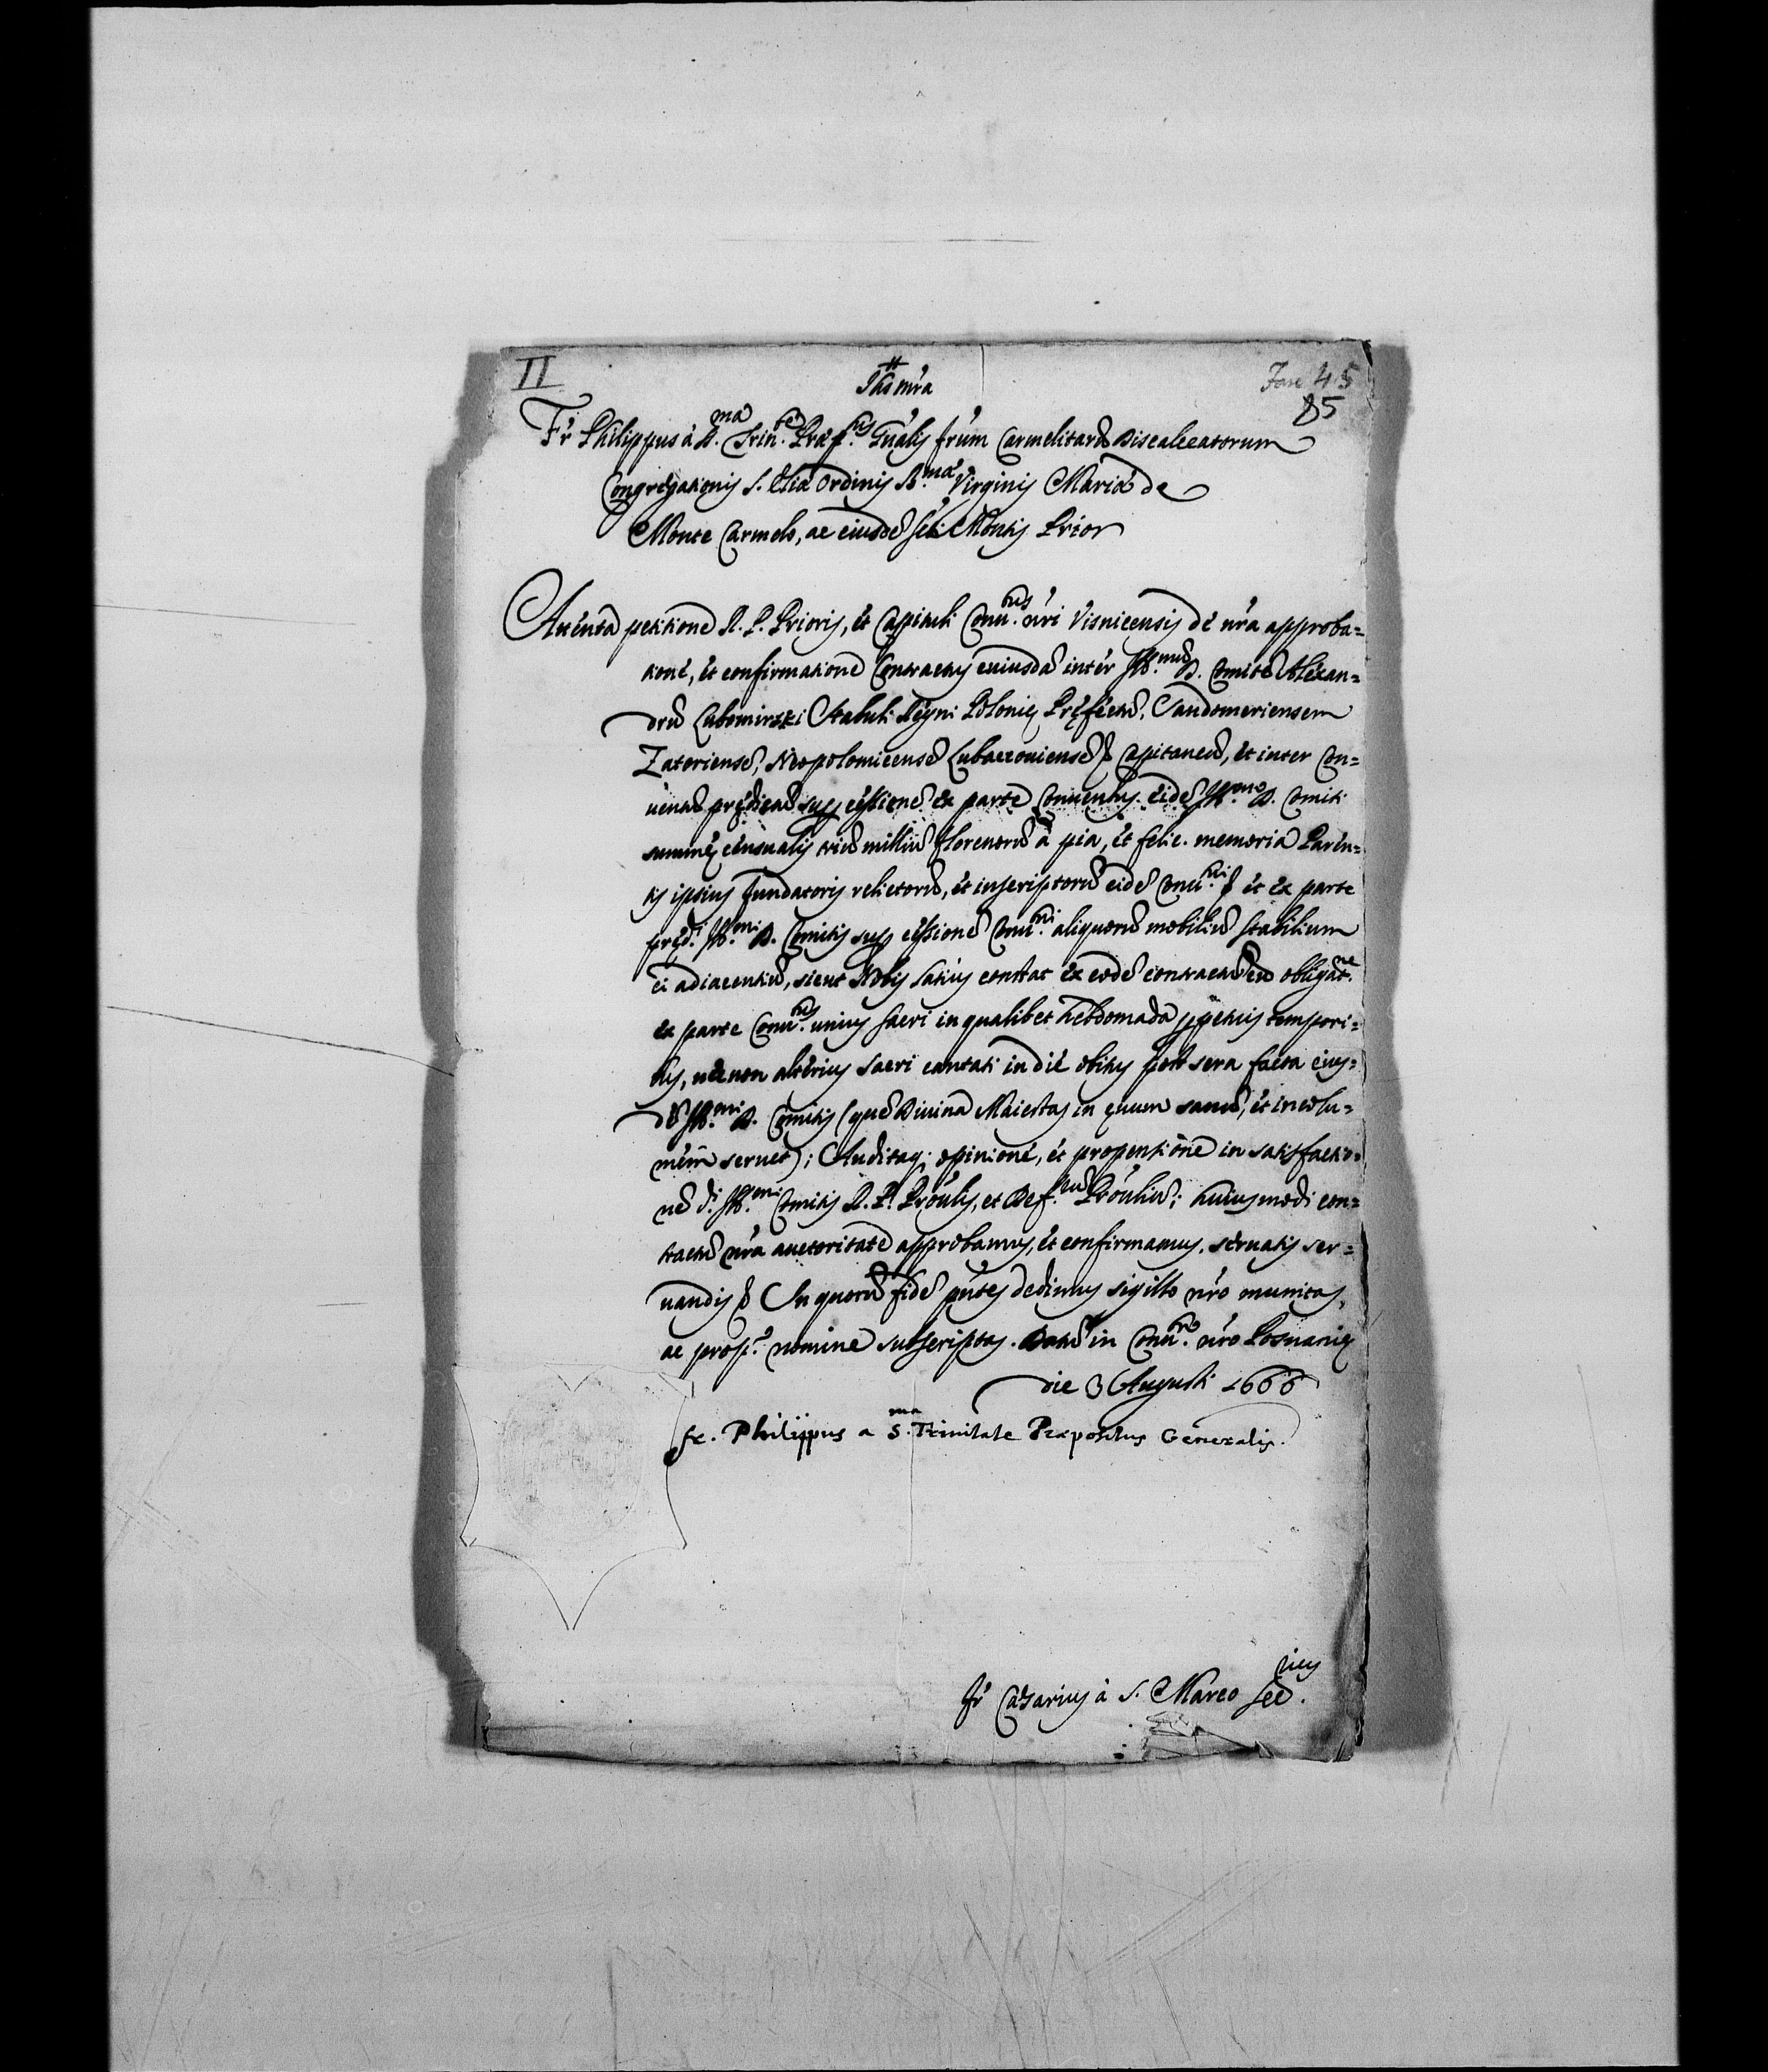 II
Jhs mra
Fasc 45
85
Fr Philippus à S.ma Trin.te Præp.tus Gńalis frum Carmelitarũ Discalceatorum
Congregationis S. Eliæ Ordinis B.mæ Virginis Mariæ de
Monte Carmelo, ac eiusdẽ scti Montis Prior
Attenta petitione R. P. Prioris, et Capituli Conu.tus nri Visnicensis de nra approba=
tione, et confirmatione Contractus cuiusdã inter Ill.mũ D. Comitẽ Alexan=
drũ Lubomirski Stabuli Regni Polonię Pręfectũ, Sandomeriensem
Zatoriensẽ, Niepolomicensẽ Lubaczouiensẽ Capitaneũ, et inter Con=
uentũ prędictũ sup cessione ex parte Conuentus eidẽ Ill.mo D. Comiti
summę censualis triũ milliũ florenorũ à pia, et felic. memoria Paren=
tis ipsius fundatoris relictorũ, et inscriptorũ eidẽ Conu.tui et ex parte
pręd.i Ill.mi D. Comitis sup cessione Conu.tui aliquorũ mobiliũ stabilium
ei adiacentiũ, sicut Nobis latius constat ex eodẽ contractu cũ obligat.ne
ex parte Conu.tus unius sacri in qualibet hebdomada ppetuis tempori=
bus, necnon alterius sacri cantati in die obitus post sera facta eius=
dẽ Ill.mi D. Comitis (quẽ Diuina Maiestas in ęuum sanũ, et incolu=
mem seruet); Auditaq; opinione, et propensione in satisfactio=
nẽ d.i Ill.mi Comitis R. P. Proulis, et Def.rũ Prouliũ; huiusmodi con=
tractũ nra auctoritate approbamus, et confirmamus, seruatis ser=
uandis In quorũ fidẽ pntes dedimus sigillo nro munitas,
ac prop.o nomine subscriptas. Datũ in Conu.tu nro Posnanię
die 3 Augusti 1666
fr. Philippus a S.ma Trinitate Præpositus Generalis.
fr Cæsarius à S. Marco Sec.rius